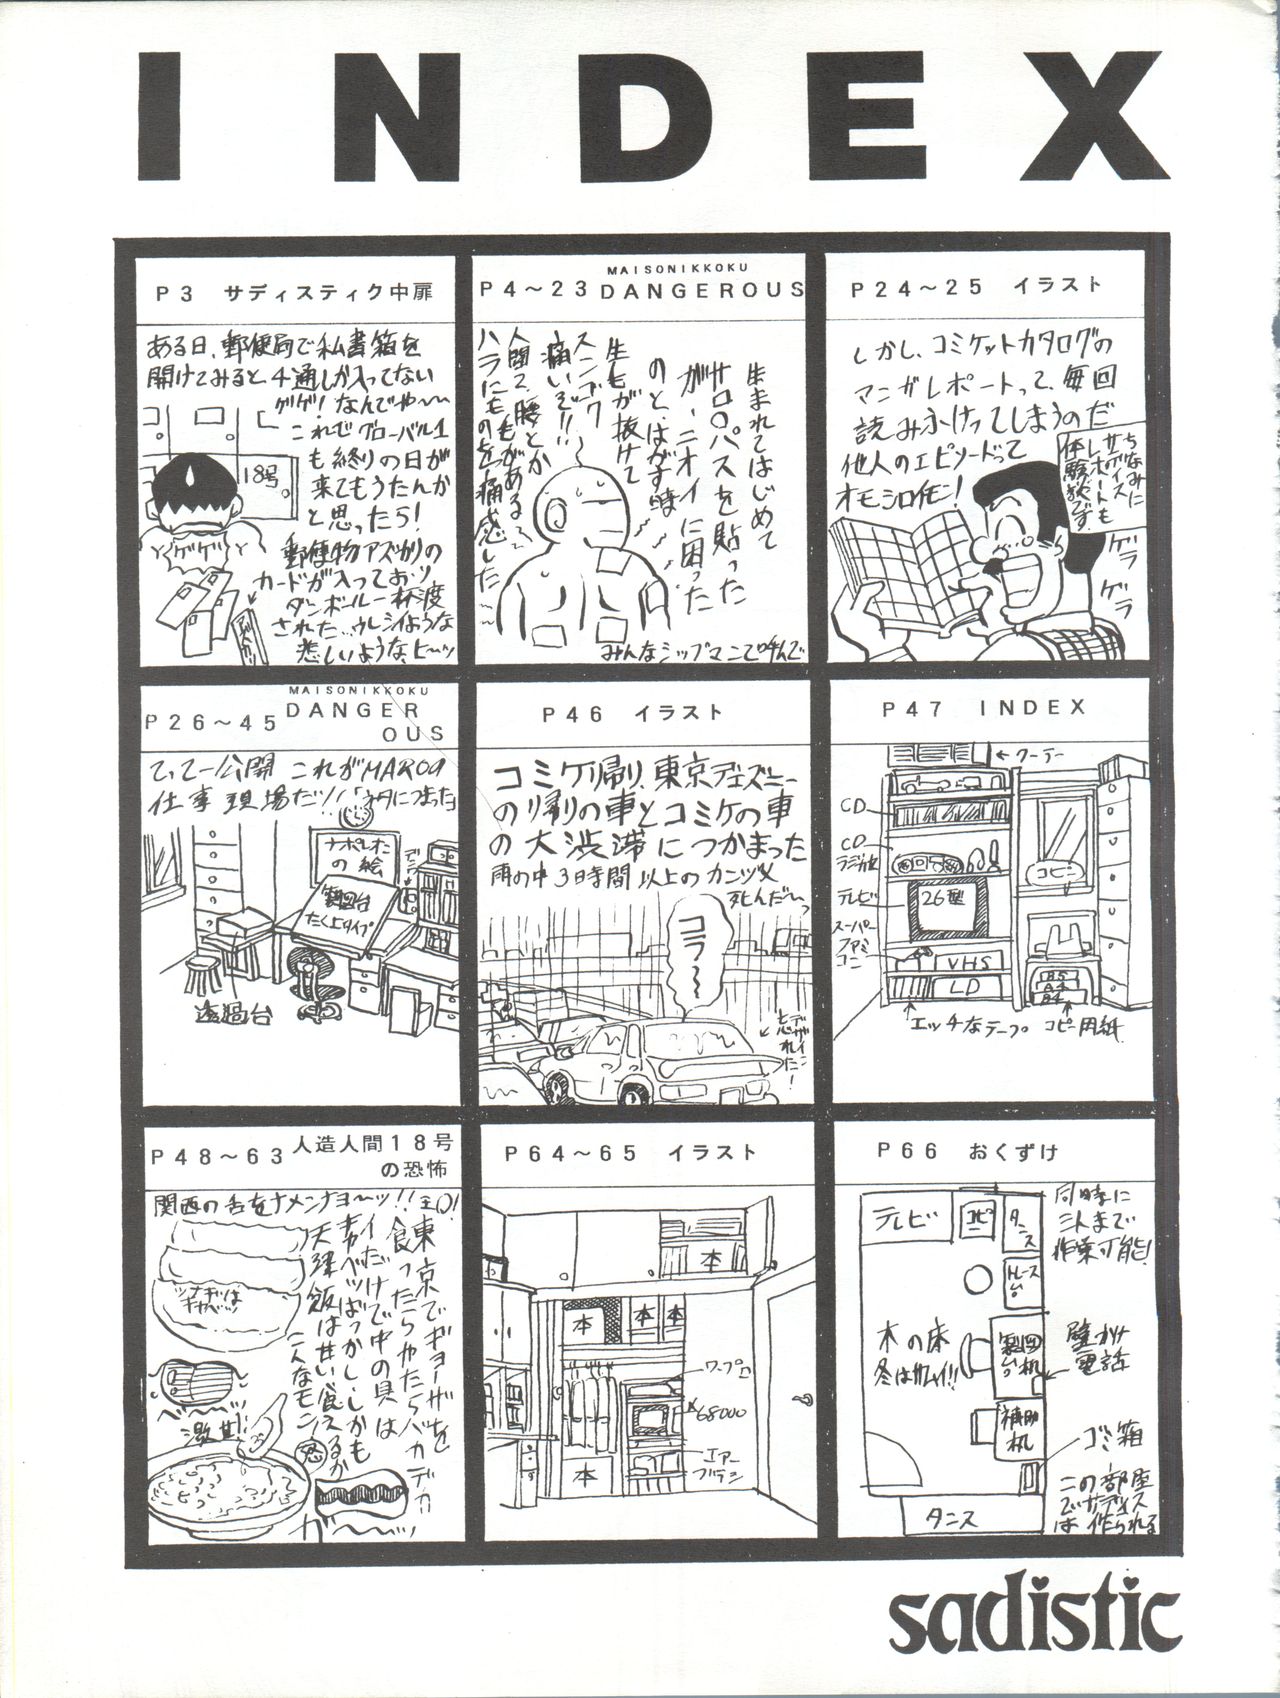 INDEX
P3 サディスティク中扉
ある日、郵便局で私書箱を
開けてみると、4通しか入ってない
ゲゲ!なんでや〜〜
これでグローバル1
も終りの日が
来てもうたんか
と思ったら!
郵便物アズカリの
カードが入っており
ダンボール一杯渡
された…ウレシイような
悲しいような、ヒ〜ッ
18号
ゲゲ
P4〜23
MAISONIKKOKU
DANGEROUS
生まれてはじめて
サロンパスを貼った
が、ニオイに困った
のと、はがす時
生毛が抜けて
スンゴク
痛いぞ!!
人間て、腰とか
ハラにものを痛感した
みんなシップマンて呼んで
P24〜25 イラスト
しかし、コミケットカタログの
マンガレポートって、毎回
読みふけってしまうのだ
他人のエピソードって
オモシロイモン!
ちなみに
サークルズ
レポートも
体験談です。
ゲラ
ゲラ
P26〜45
MAISONIKKOKU
DANGER
OUS
てってー公開 これがMAROQ
仕事現場だッ!
ナポレオン
の絵
製図台
たく上タイプ
透過台
P46 イラスト
コミケ帰り、東京ディズニー
の帰りの車とコミケの車
の大渋滞につかまった
雨の中3時間以上のカンヅメ
死んだ〜っ
コラ〜〜
デザイン
忘れた!
P47 INDEX
クーラー
CD
CD
ラジカセ
テレビ
26型
スーパー
ファミ
コン
VHS
LD
コピー
B5
A4
B4
エッチなテープ
コピー用紙
P48〜63
人造人間18号
の恐怖
関西の舌をナメンナヨ〜ッ!!
東京でギョーザを
食ったらやたらバカデカ
イだけで中の具は
キャベツばっかし、しかも
天津飯は甘い食えるか
こんなモン
ツナギは
キャベツッ
べ〜〜
激甘
ガ〜〜ッ
P64〜65 イラスト
本
本
本
本
本
ワープロ
68000
エアー
ブラシ
P66 おくずけ
テレビ
コピー
タンス
トレース
台
製図
台
机
補助
机
タンス
木の床
冬はサムイ!!
同時に
三人まで
作業可能!
壁かけ
電話
ゴミ箱
この部屋
でサディス
は作られる
sadistic